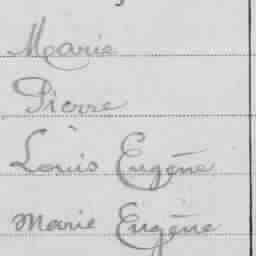 Marie
Pierre
Louis Eugène
Marie Eugène